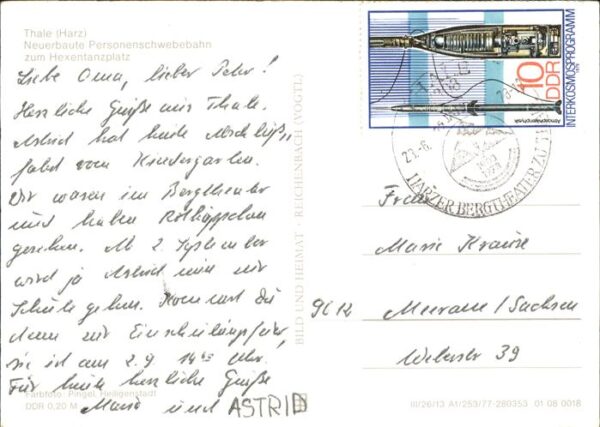 Thale (Harz)
Neuerbaute Personenschwebebahn
zum Hexentanzplatz
Liebe Oma, lieber Peter!
Herzliche Grüße aus Thale.
Astrid hat heute Abschluß,
fahrt vom Kindergarten.
Wir waren im Bergtheater
und haben Rotkäppchen
gesehen. Ab 2. September
wird ja Astrid nun zur
Schule gehen. Kommst du
dann zur Einschulungsfeier,
sie ist am 2.9 14 Uhr.
Für heute herzliche Grüße
Mario und ASTRID
Farbfoto: Pingel, Heiligenstadt
DDR 0,20 M
BILD UND HEIMAT · REICHENBACH (VOGTL)
10
DDR
INTERKOSMOSPROGRAMM
THALE
HARZER BERGTHEATER ZU
Frau
Marie Krause
9612 Meerane/Sachsen
Weberstr 39
III/26/13 A1/253/77-280353 01 08 0018